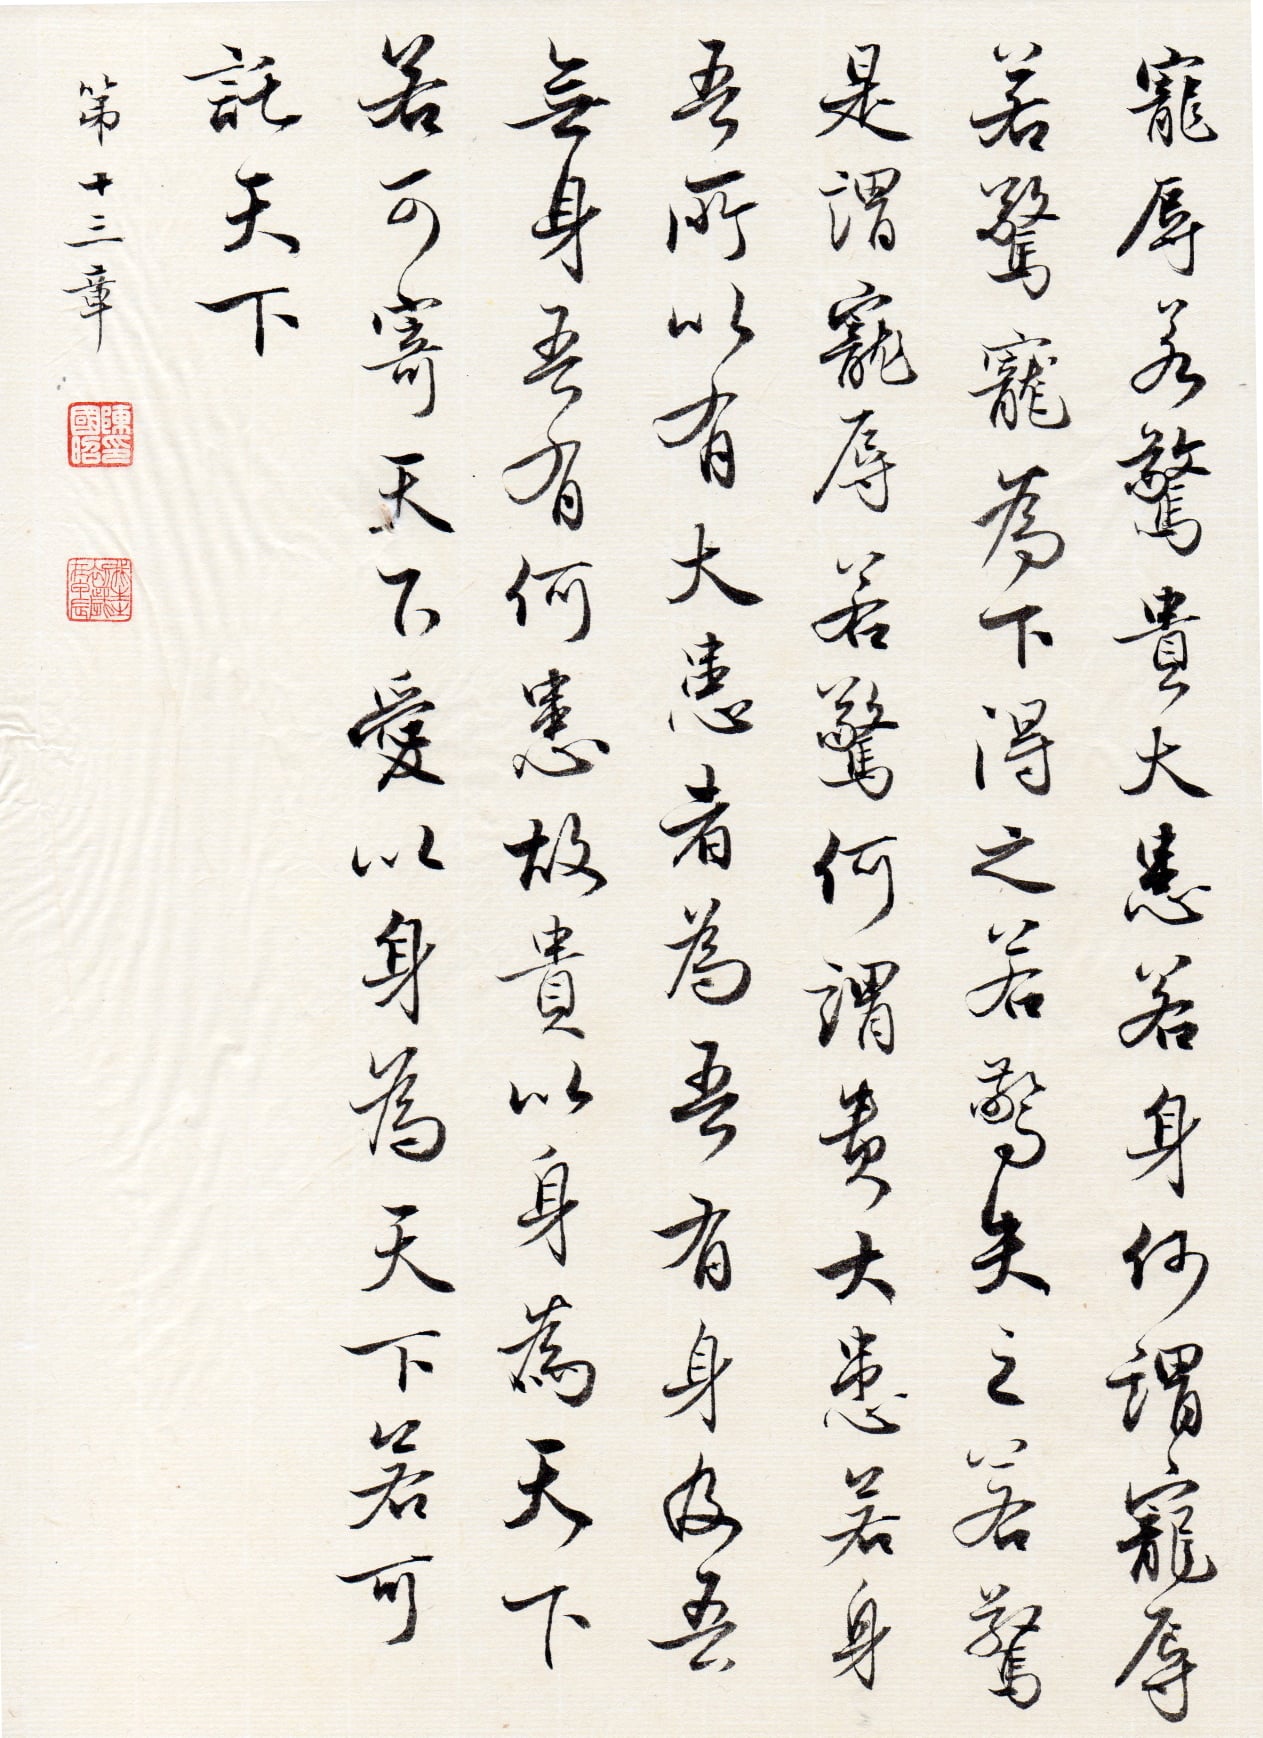 寵辱若驚貴大患若身何謂寵辱
若驚寵為下得之若驚失之若驚
是謂寵辱若驚何謂貴大患若身
吾所以有大患者為吾有身及吾
無身吾有何患故貴以身為天下
若可寄天下愛以身為天下若可
託天下
第十三章
陳國昭印